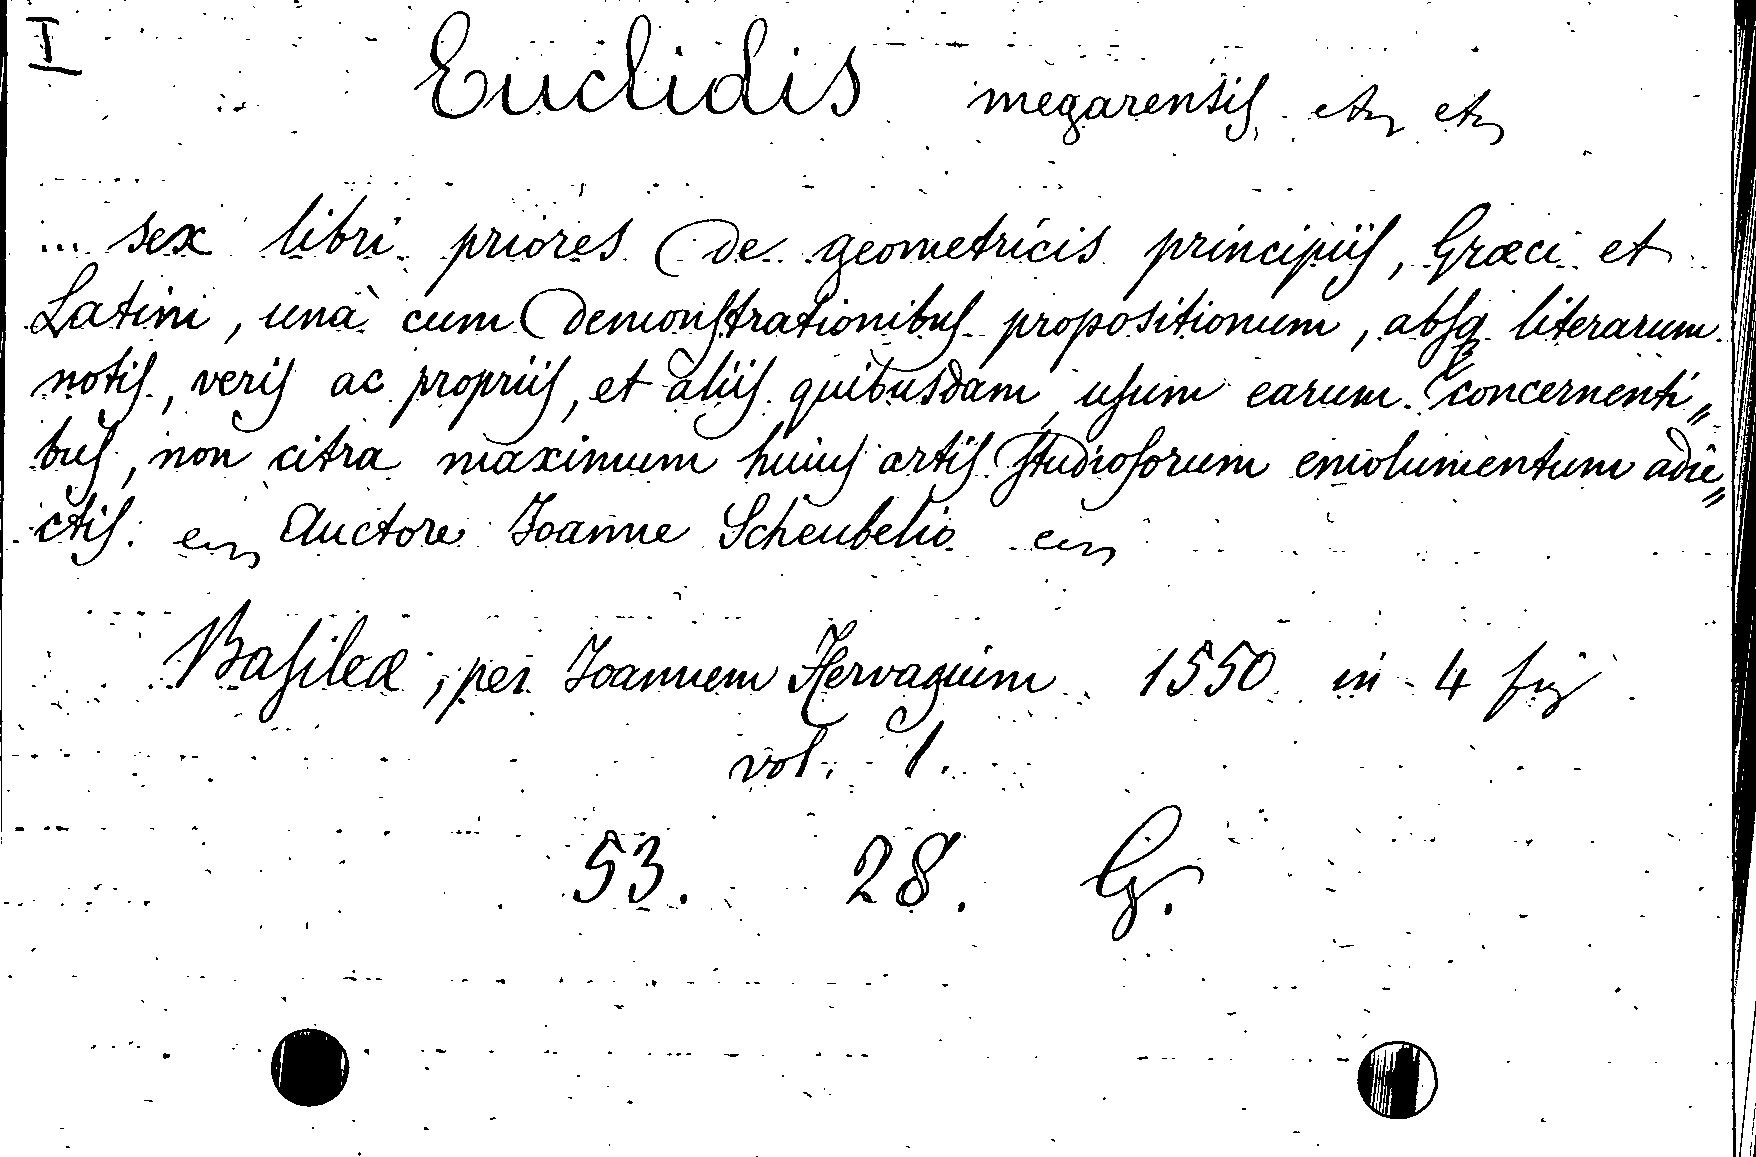 I
Euclidis megarensis, etc etc
... sex libri priores De geometricis principiis, Græci et
Latini, unà cum Demonstrationibus propositionum, absq literarum
notis, veris ac propriis, et aliis quibusdam, usum earum concernenti„
bus, non citra maximum huius artis studiosorum emolumentum adie„
ctis. Auctore Joanne Scheubelio
Basileæ, per Joannem Hervagium 1550 in 4 fig
vol. 1.
53. 28.